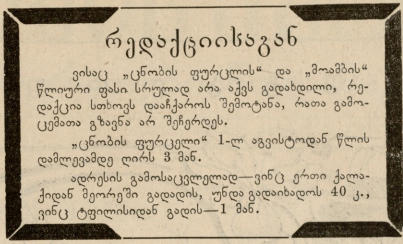 რედაქციისაგან
ვისაც „ცნობის ფურცლის“ და „მოამბის“
წლიური ფასი სრულად არა აქვს გადახდილი, რე-
დაქცია სთხოვს დააჩქაროს შემოტანა, რათა გამო-
ცემათა გზავნა არ შეჩერდეს.
„ცნობის ფურცელი“ 1-ლ აგვისტოდან წლის
დამლევამდე ღირს 3 მან.
ადრესის გამოსაცვლელად—ვინც ერთი ქალა-
ქიდან მეორეში გადადის, უნდა გადაიხადოს 40 კ.,
ვინც ტფილისიდან გადის—1 მან.